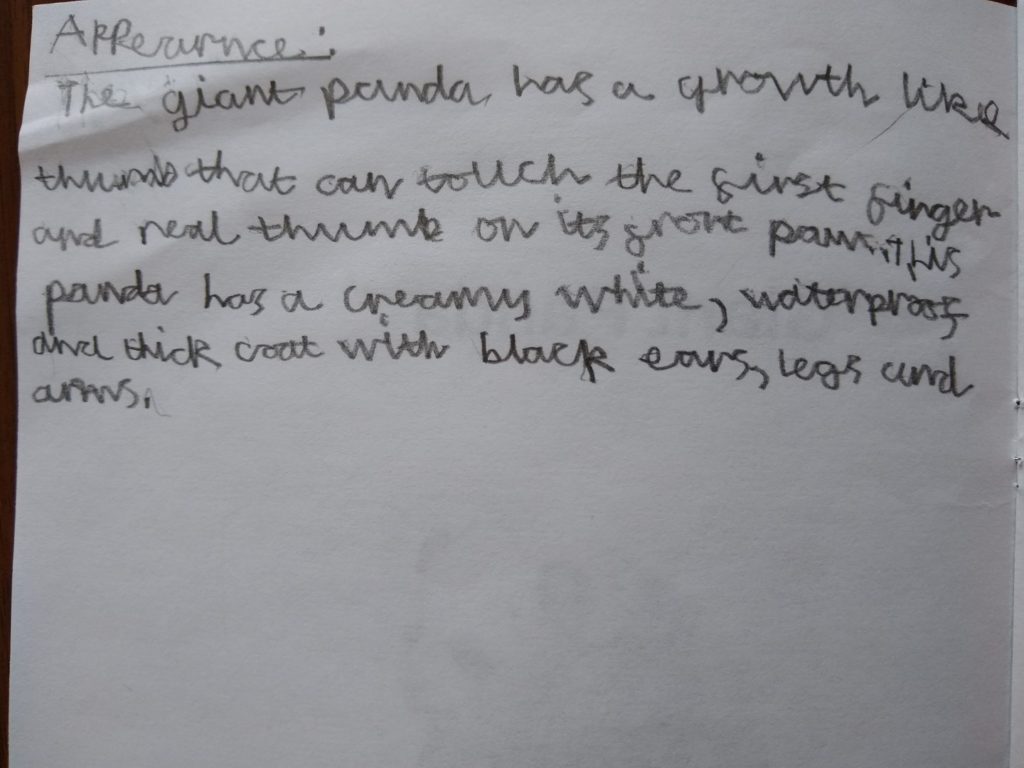 Appearnce:
The giant panda has a growth like
thumb that can touch the first finger
and real thumb on its front paw. This
panda has a creamy white, waterproof
and thick coat with black ears, legs and
arms.